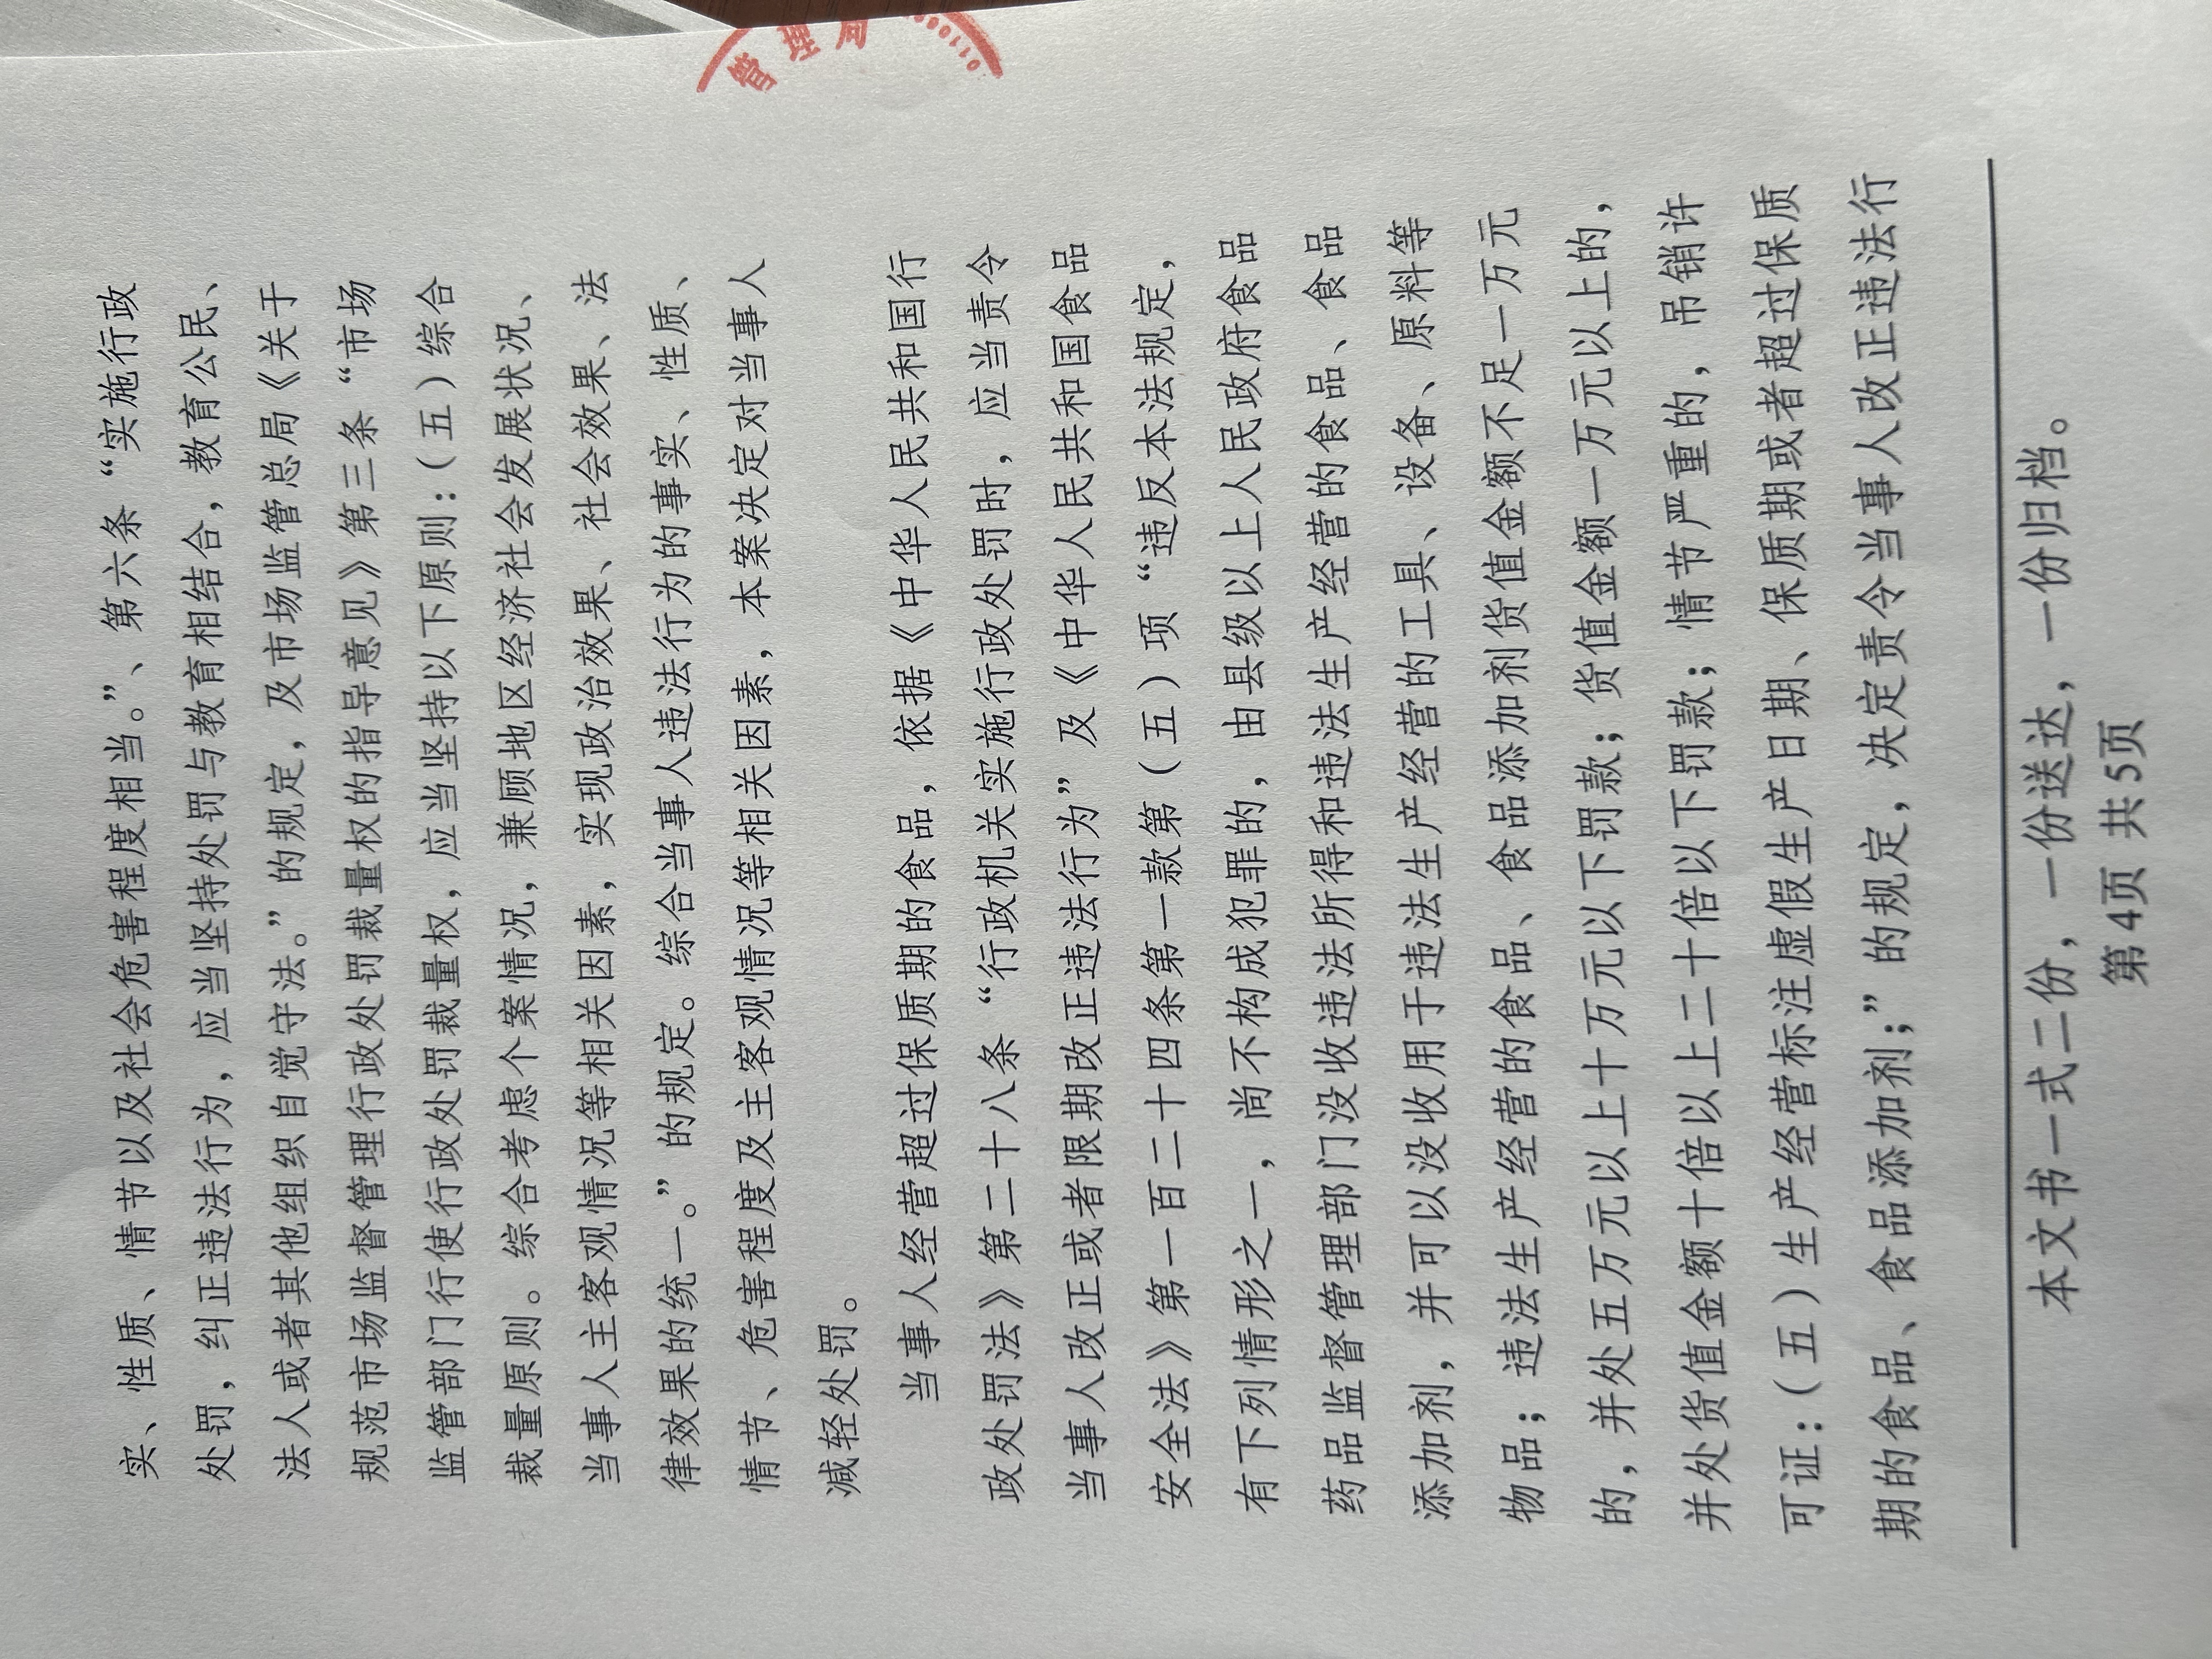 实、性质、情节以及社会危害程度相当。”、第六条“实施行政
处罚，纠正违法行为，应当坚持处罚与教育相结合，教育公民、
法人或者其他组织自觉守法。”的规定，及市场监管总局《关于
规范市场监督管理行政处罚裁量权的指导意见》第三条“市场
监管部门行使行政处罚裁量权，应当坚持以下原则：（五）综合
裁量原则。综合考虑个案情况，兼顾地区经济社会发展状况、
当事人主客观情况等相关因素，实现政治效果、社会效果、法
律效果的统一。”的规定。综合当事人违法行为的事实、性质、
情节、危害程度及主客观情况等相关因素，本案决定对当事人
减轻处罚。
当事人经营超过保质期的食品，依据《中华人民共和国行
政处罚法》第二十八条“行政机关实施行政处罚时，应当责令
当事人改正或者限期改正违法行为”及《中华人民共和国食品
安全法》第一百二十四条第一款第（五）项“违反本法规定，
有下列情形之一，尚不构成犯罪的，由县级以上人民政府食品
药品监督管理部门没收违法所得和违法生产经营的食品、食品
添加剂，并可以没收用于违法生产经营的工具、设备、原料等
物品；违法生产经营的食品、食品添加剂货值金额不足一万元
的，并处五万元以上十万元以下罚款；货值金额一万元以上的，
并处货值金额十倍以上二十倍以下罚款；情节严重的，吊销许
可证：（五）生产经营标注虚假生产日期、保质期或者超过保质
期的食品、食品添加剂；”的规定，决定责令当事人改正违法行
本文书一式二份，一份送达，一份归档。
第4页 共5页
管理局